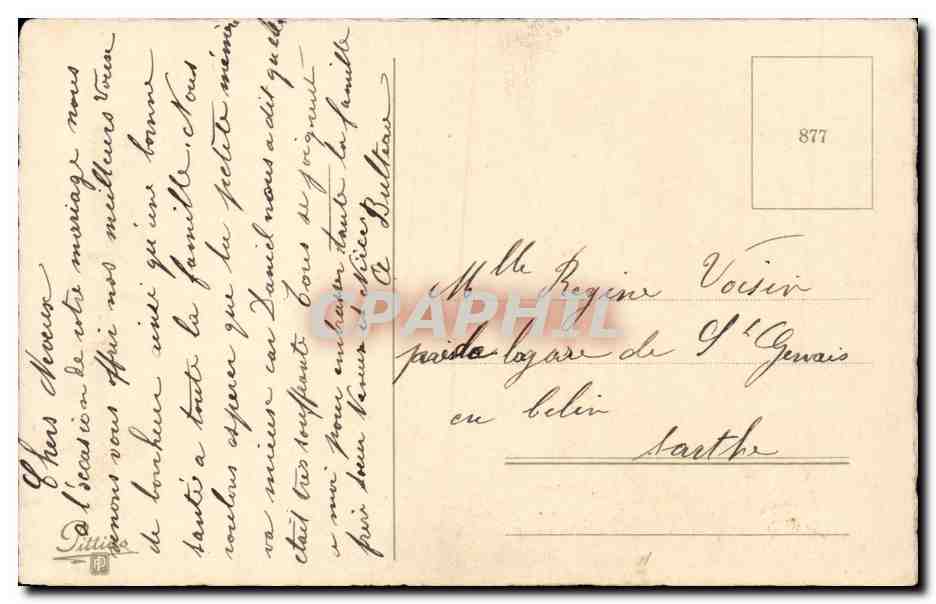 Chers neveux
a l'occasion de votre mariage nous
venons vous offrir nos meilleurs Voeux
de bonheur ainsi qu'une bonne
santé a toute la famille. Nous
voulons esperer que la petite mémère
va mieux car Daniel nous a dit qu'elle
était tres souffrante Tous se joignent
a moi pour embrasser toute la famille
frère soeur Neveux et Nièces
Bulteau
877
Mlle Regine Voisin
près de la gare de St Gervais
en belin
Sarthe
CPAPHIL